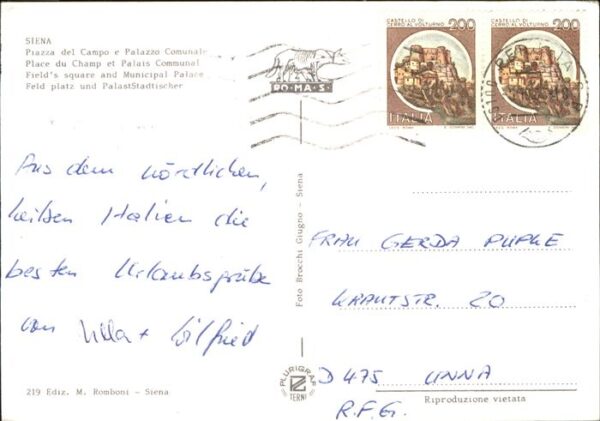 SIENA
Piazza del Campo e Palazzo Comunale
Place du Champ et Palais Communal
Field's square and Municipal Palace
Feld platz und PalastStadtischer
RO·MA·S·
CASTELLO DI
CERRO AL VOLTURNO
200
ITALIA
CASTELLO DI
CERRO AL VOLTURNO
200
ITALIA
Aus dem nördlichen,
heißen Italien die
besten Urlaubsgrüße
von Ulla + Wilfried
Foto Brocchi Giugno - Siena
FRAU GERDA
KRAUTSTR. 20
D 475 UNNA
R.F.G.
PLURIGRAF
TERNI
219 Ediz. M. Romboni - Siena
Riproduzione vietata